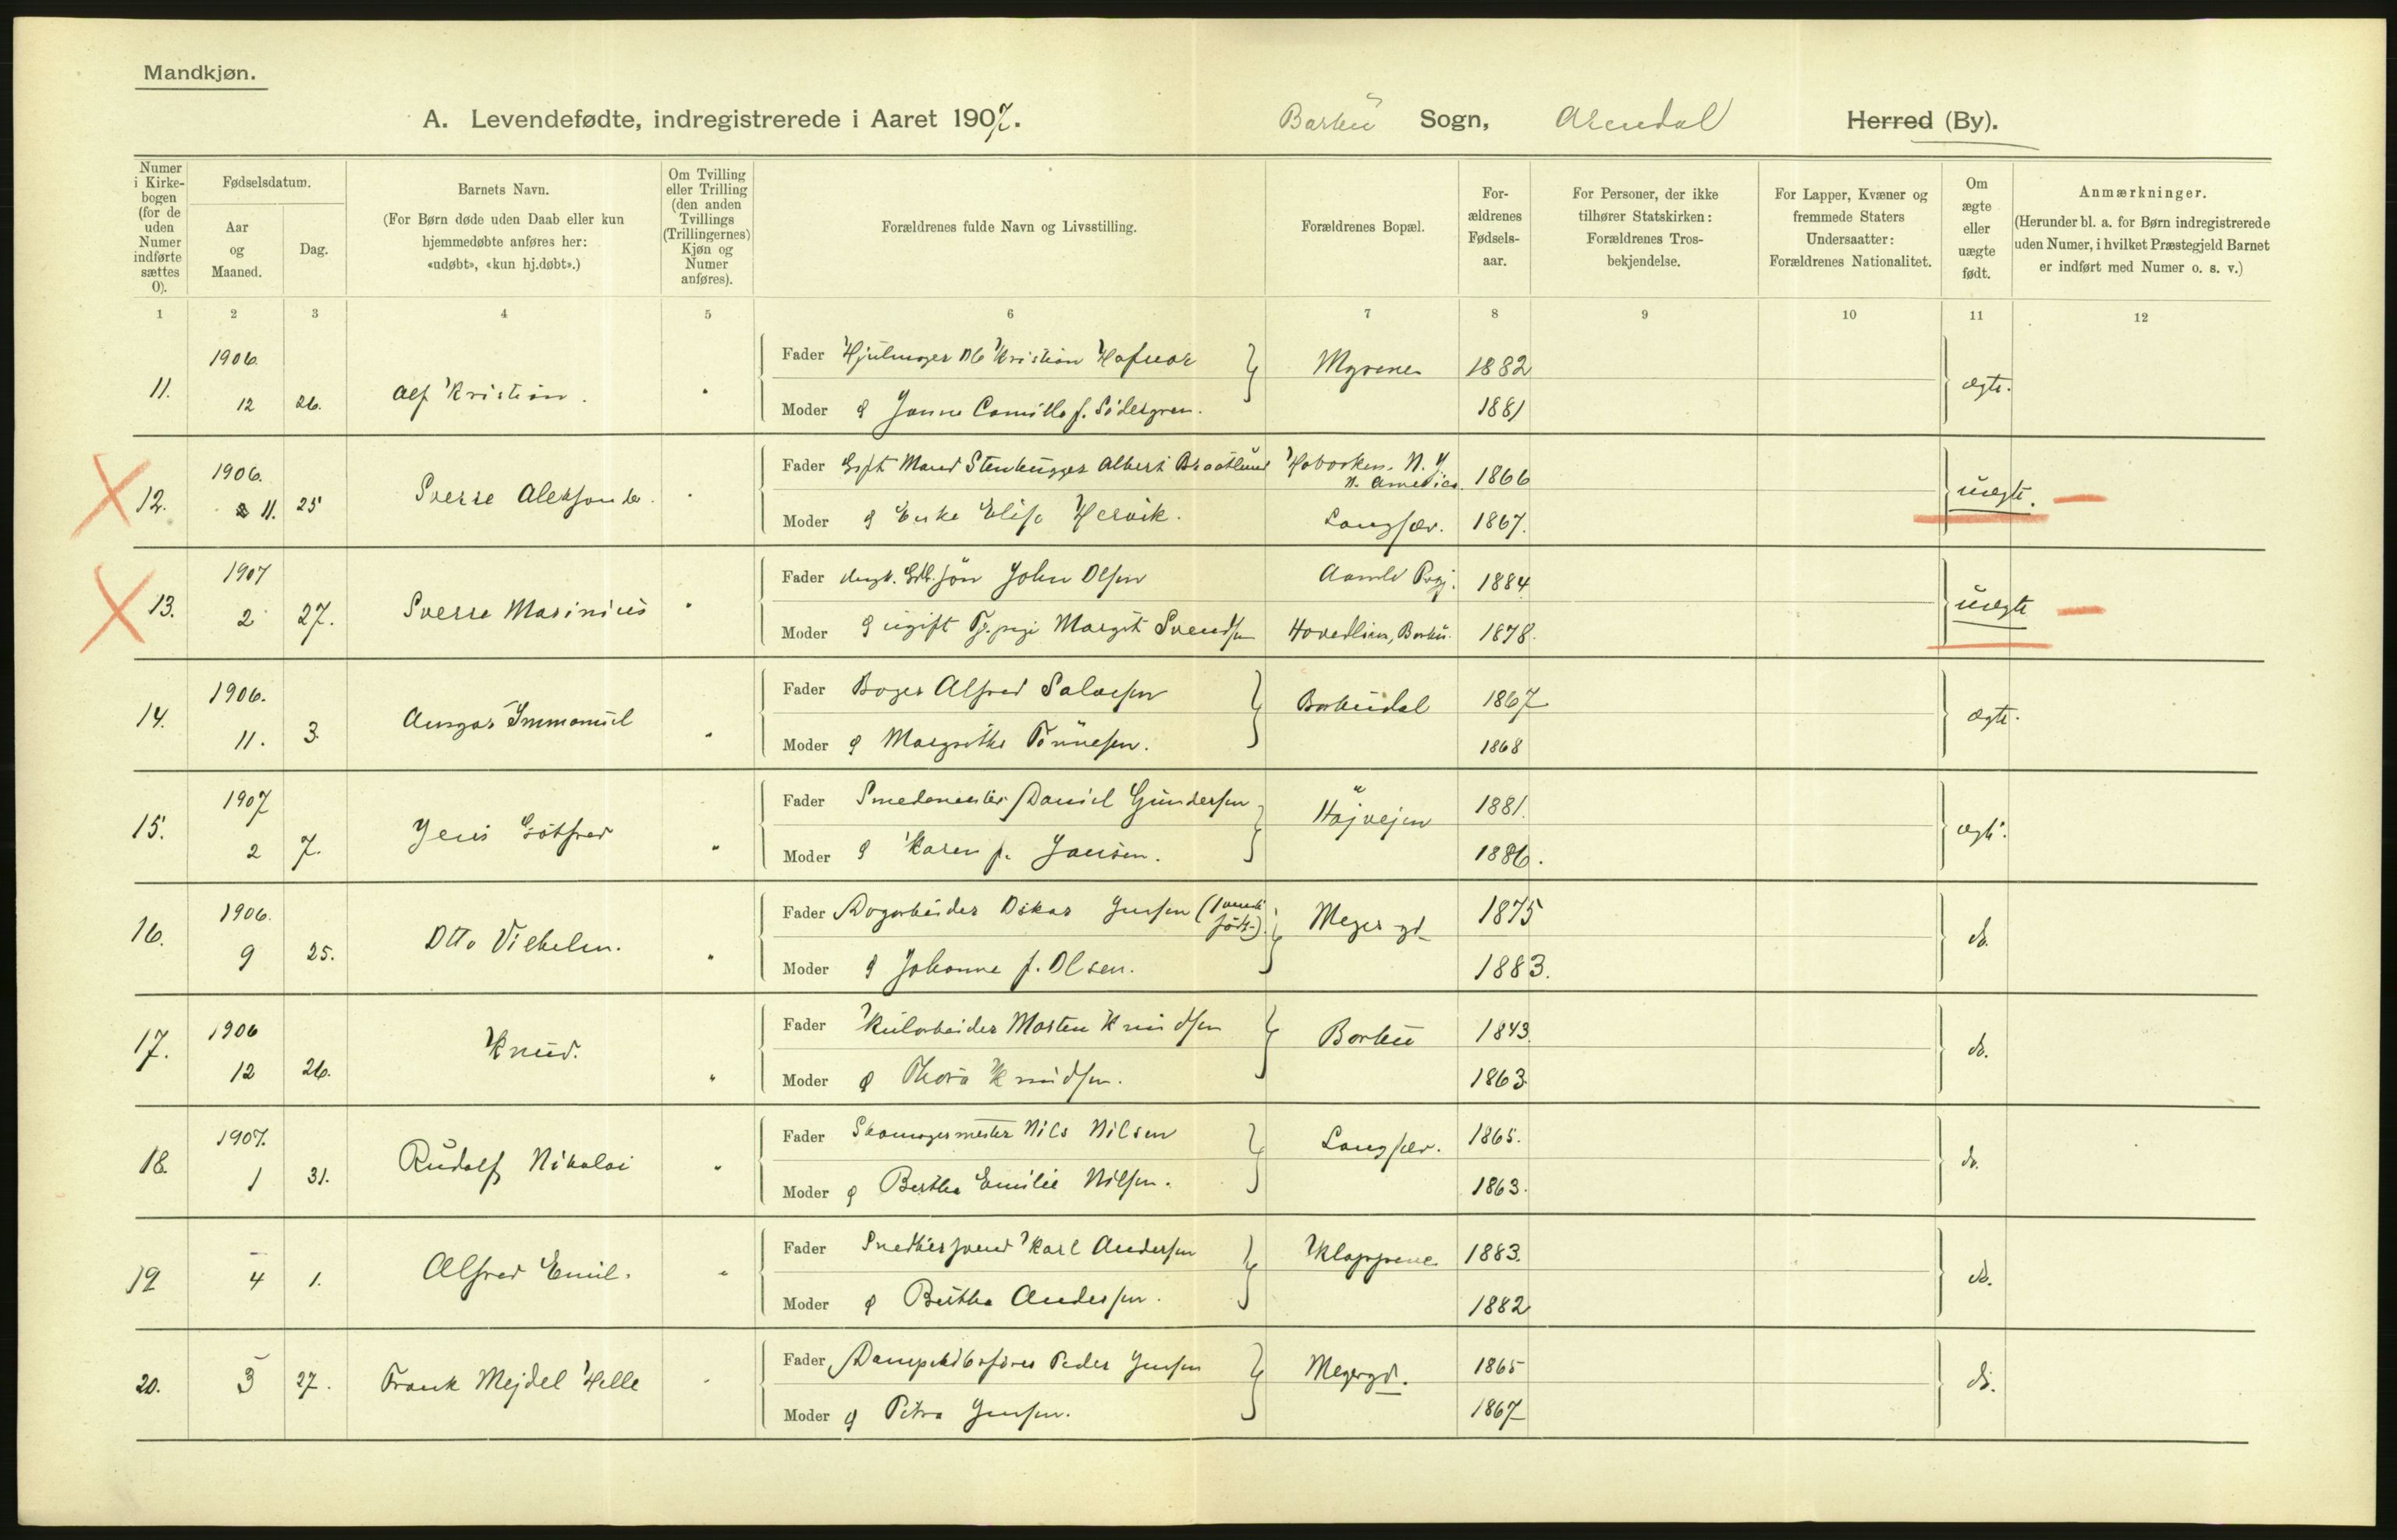 Mandkjøn.
A. Levendefødte, indregistrerede i Aaret 1907. Barbu Sogn, Arendal Herred (By).
Numer i Kirkebogen (for de uden Numer indførte sættes 0).
Fødselsdatum.
Aar og Maaned.
Dag.
Barnets Navn.
(For Børn døde uden Daab eller kun hjemmedøbte anføres her: «udøbt», «kun hj.døbt».)
Om Tvilling eller Trilling (den anden Tvillings (Trillingernes) Kjøn og Numer anføres).
Forældrenes fulde Navn og Livsstilling.
Forældrenes Bopæl.
Forældrenes Fødselsaar.
For Personer, der ikke tilhører Statskirken: Forældrenes Trosbekjendelse.
For Lapper, Kvæner og fremmede Staters Undersaatter: Forældrenes Nationalitet.
Om ægte eller uægte født.
Anmærkninger.
(Herunder bl. a. for Børn indregistrerede uden Numer, i hvilket Præstegjeld Barnet er indført med Numer o. s. v.)
1 2 3 4 5 6 7 8 9 10 11 12
11. 1906. 12 26. Alf Kristian. Fader Hjulmager Kristian Myrene 1882 ægte.
Moder Janna Camilla f. Södergren. 1881
12. 1906. 11. 25 Sverre Aleksander. Fader Gift Mand Stenhugger Albert Braatlund Hoboken. N. Y. N. Amerika. 1866 uægte.
Moder Enke Elise Hervik. Langsæv. 1867.
13. 1907 2 27. Sverre Marinius Fader ungk. John Olsen Aamli Prgj. 1884 uægte
Moder ugift Margit Svendsen Hovedlien, Barbu. 1878.
14. 1906. 11. 3. Ansgar Immanuel Fader Bager Alfred Salvesen Barbudal 1867 ægte.
Moder Margrethe Tönnesen. 1868
15. 1907 2 7. Jens Gotfred Fader Smedemester Daniel Gundersen Højvejen 1881. ægte.
Moder Karen f. Jansen. 1886.
16. 1906. 9 25. Otto Vilhelm. Fader Oskar Jensen Meyer gd. 1875 do.
Moder Johanne f. Olsen. 1883.
17. 1906 12 26. Knud. Fader Kularbeider Morten Knudsen Barbu 1843. do.
Moder Thora Knudsen. 1863
18. 1907. 1 31. Rudolf Nikolai Fader Skomagermester Nils Nilsen Langsæv. 1865. do.
Moder Bertha Emilie Nilsen. 1863.
19 4 1. Alfred Emil. Fader Snedkersvend Karl Andersen Klappene 1883. do.
Moder Bertha Andersen. 1882
20. 3 27. Frank Mejdel Helle Fader Dampskibsfører Peder Jensen Meyergd. 1865 do.
Moder Petra Jensen. 1867